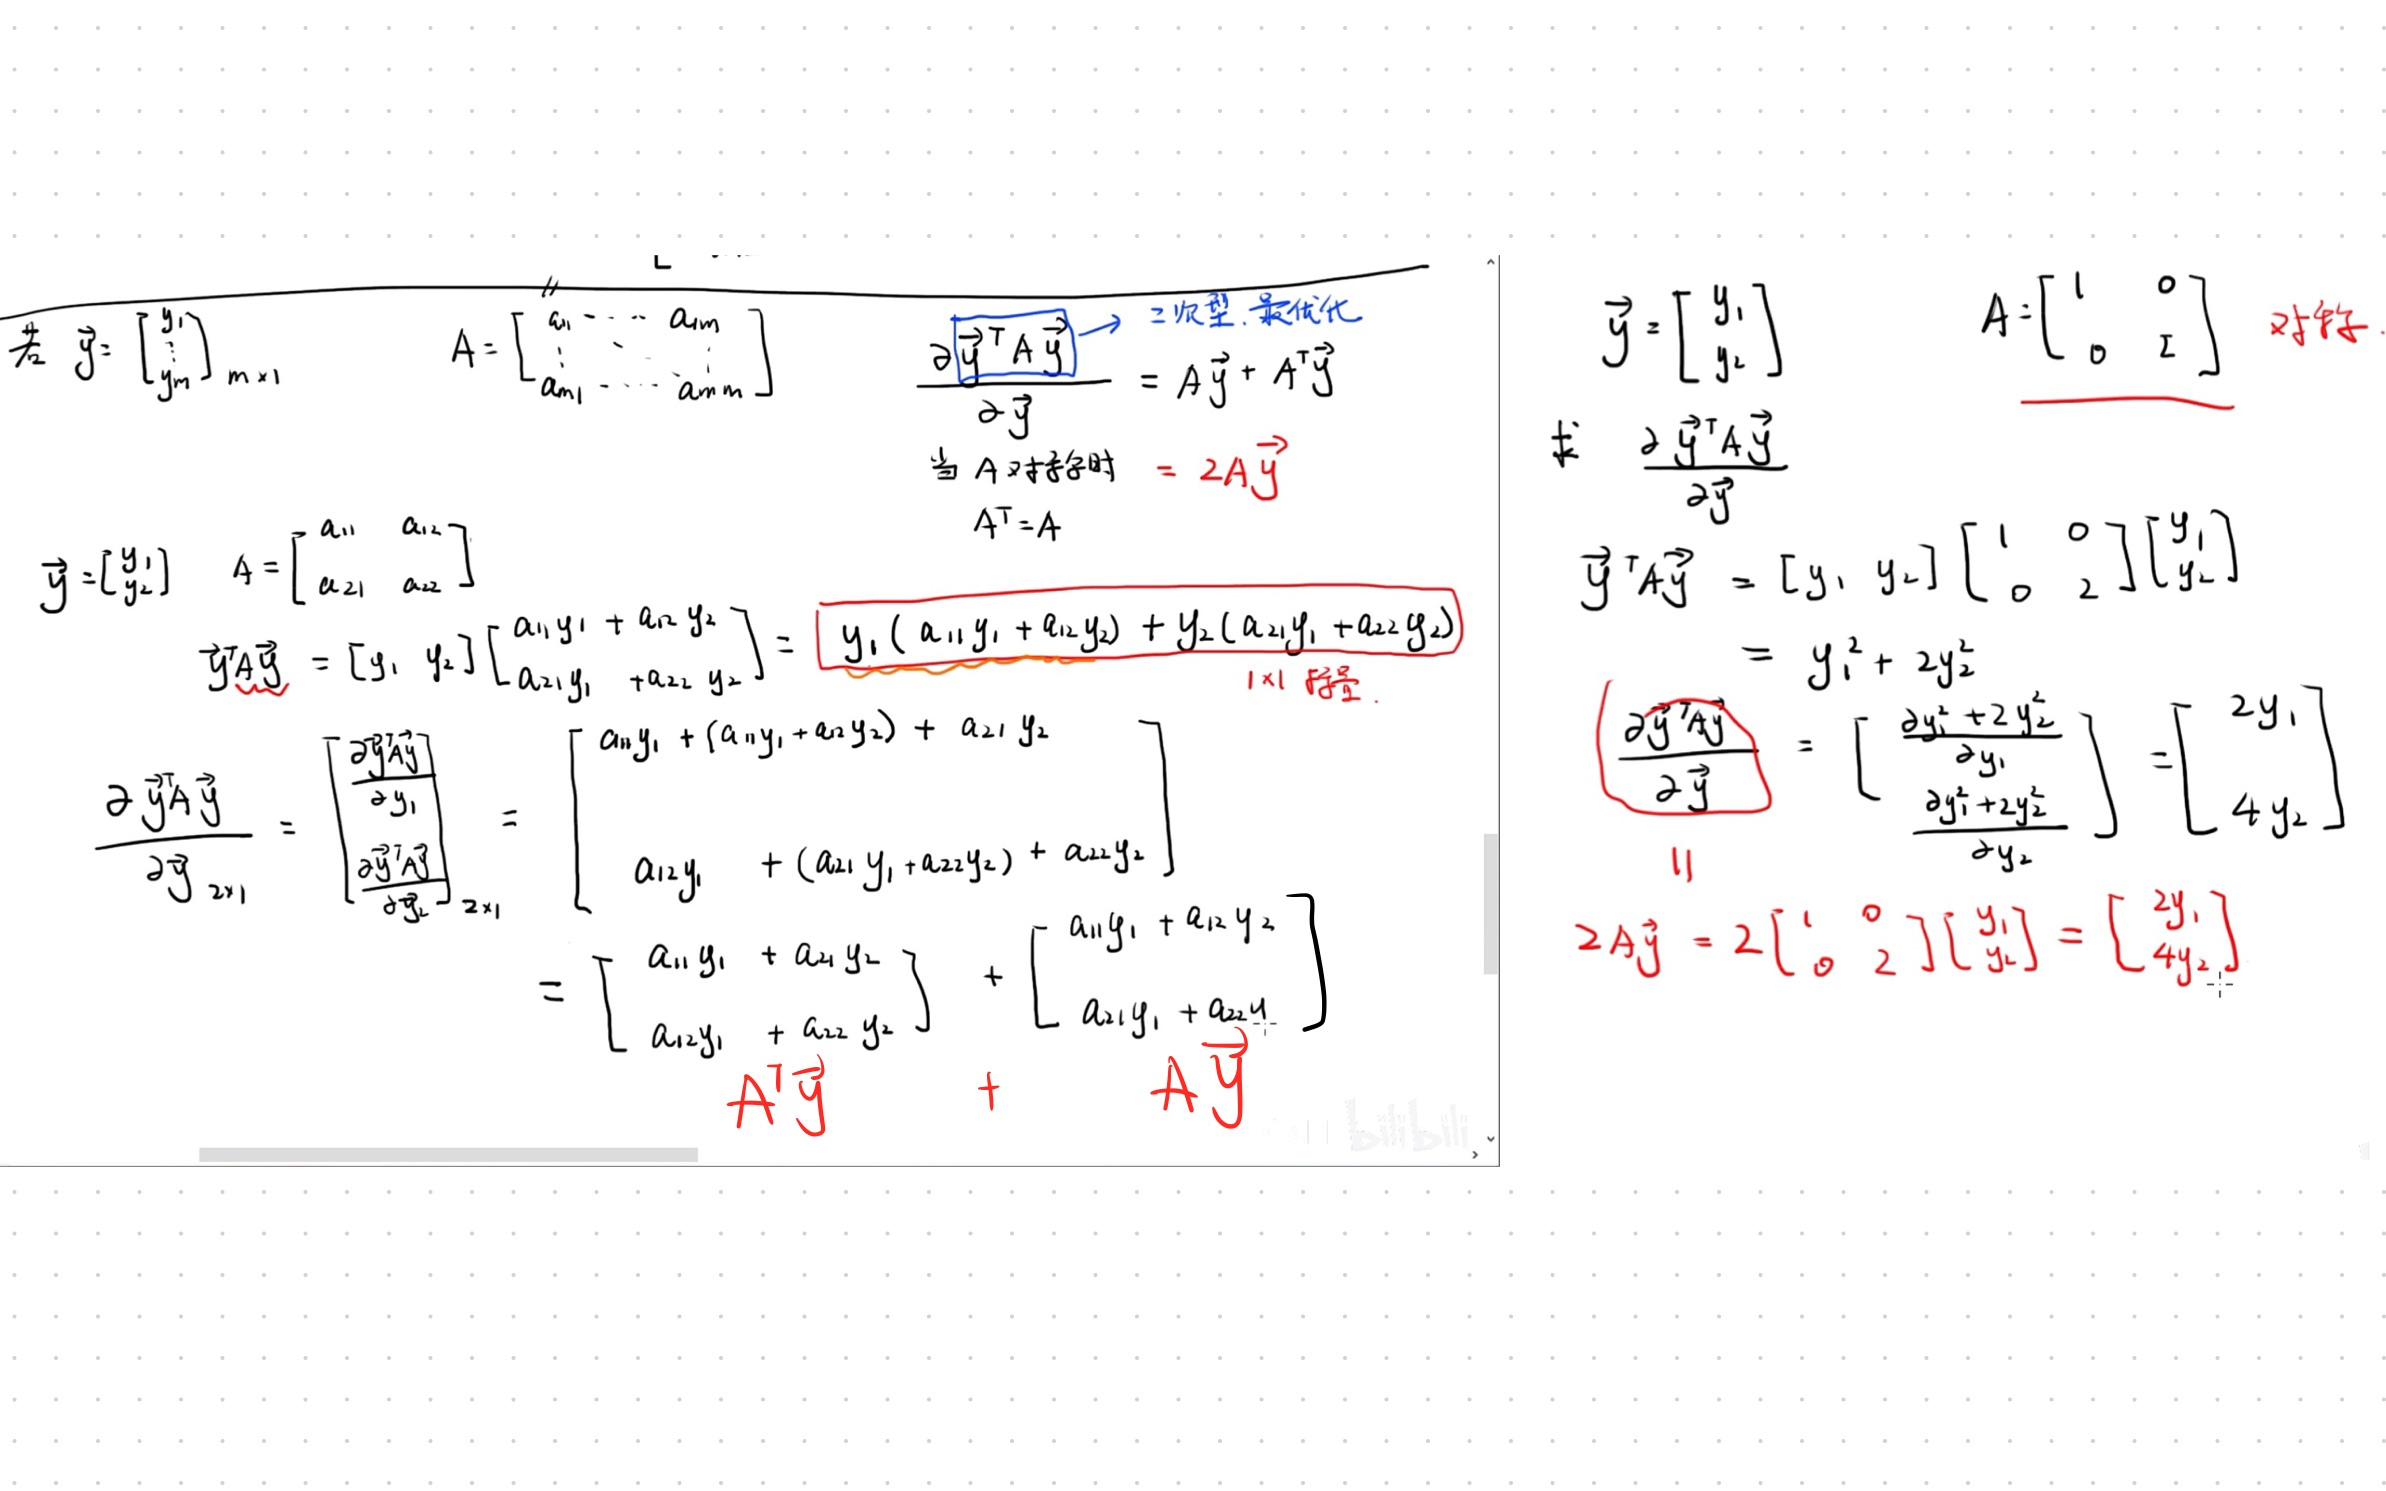 若 y⃗ = [y₁ ⋮ yₘ] m×1
A = [a₁₁ ---- a₁ₘ ⋮ ⋱ ⋮ aₘ₁ ---- aₘₘ]
∂y⃗ᵀAy⃗ / ∂y⃗ = Ay⃗ + Aᵀy⃗
→ 二次型. 最优化
当 A 对称时 = 2Ay⃗
Aᵀ = A
y⃗ = [y₁ y₂] A = [a₁₁ a₁₂ a₂₁ a₂₂]
y⃗ᵀAy⃗ = [y₁ y₂] [a₁₁y₁ + a₁₂y₂ a₂₁y₁ + a₂₂y₂] = y₁(a₁₁y₁ + a₁₂y₂) + y₂(a₂₁y₁ + a₂₂y₂)
1×1 标量.
∂y⃗ᵀAy⃗ / ∂y⃗ 2×1 = [∂y⃗ᵀAy⃗ / ∂y₁ ∂y⃗ᵀAy⃗ / ∂y⃗₂] 2×1 = [a₁₁y₁ + (a₁₁y₁ + a₁₂y₂) + a₂₁y₂ a₁₂y₁ + (a₂₁y₁ + a₂₂y₂) + a₂₂y₂]
= [a₁₁y₁ + a₂₁y₂ a₁₂y₁ + a₂₂y₂] + [a₁₁y₁ + a₁₂y₂ a₂₁y₁ + a₂₂y]
Aᵀy⃗ + Ay⃗
bilibili
y⃗ = [y₁ y₂] A = [1 0 0 2] 对称.
求 ∂y⃗ᵀAy⃗ / ∂y⃗
y⃗ᵀAy⃗ = [y₁ y₂] [1 0 0 2] [y₁ y₂]
= y₁² + 2y₂²
∂y⃗ᵀAy⃗ / ∂y⃗ = [∂y₁² + 2y₂² / ∂y₁ ∂y₁² + 2y₂² / ∂y₂] = [2y₁ 4y₂]
||
2Ay⃗ = 2 [1 0 0 2] [y₁ y₂] = [2y₁ 4y₂]